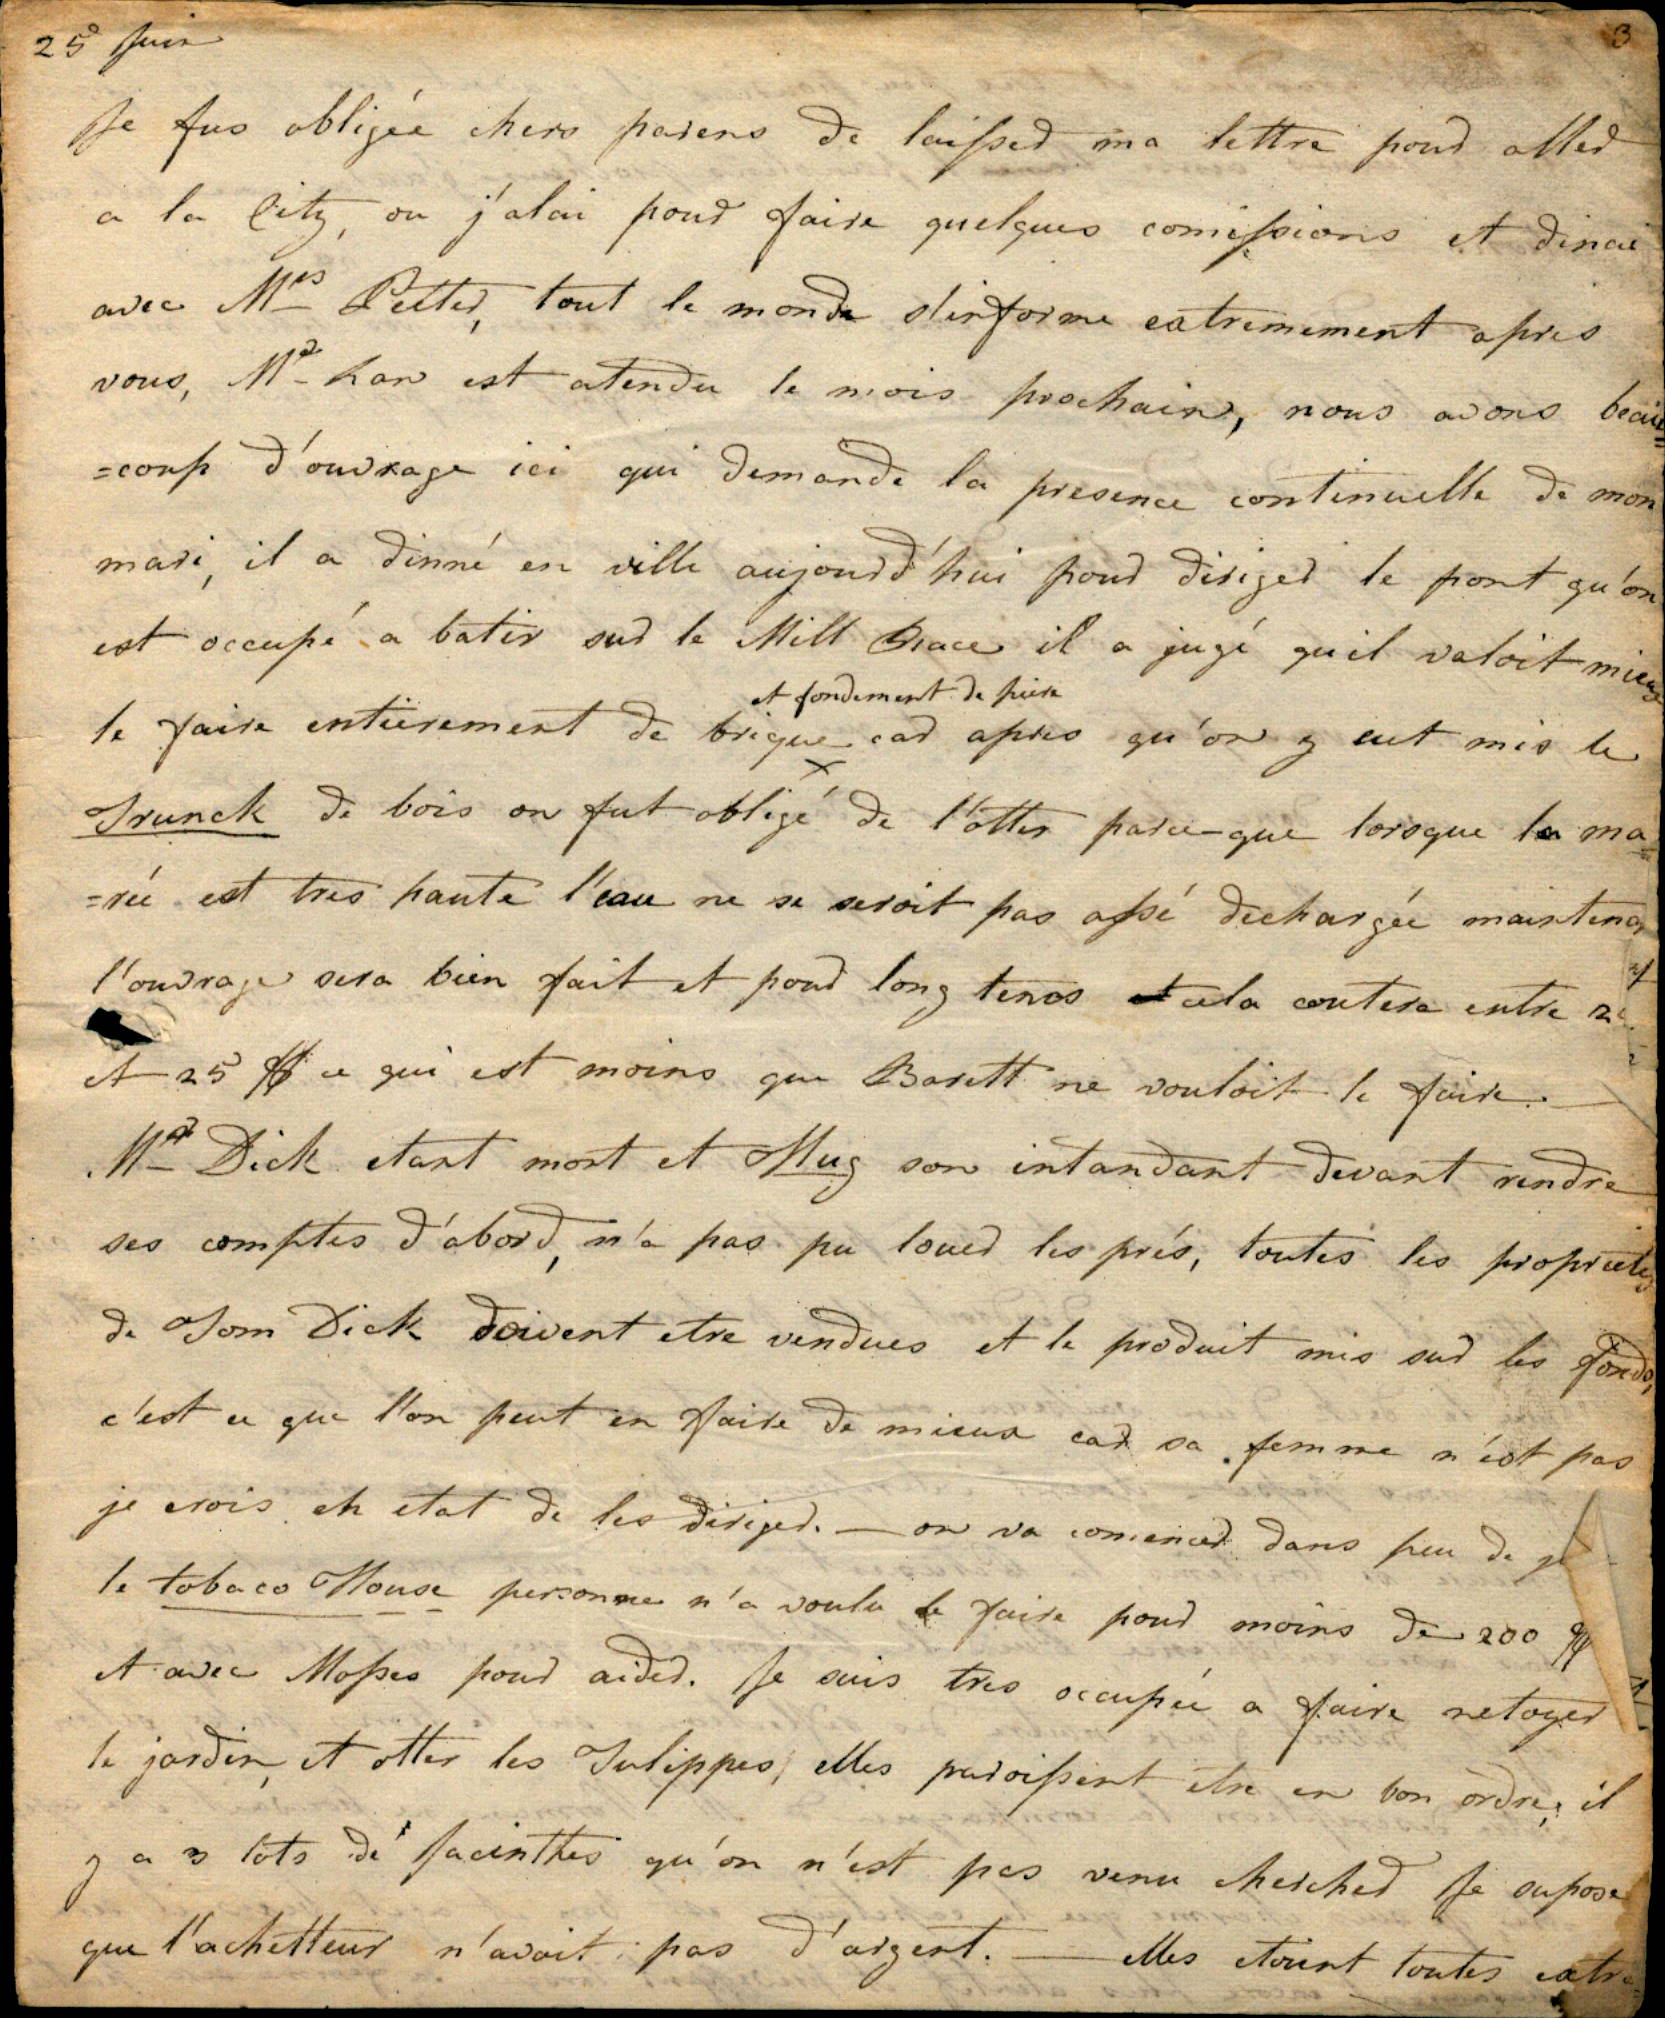 25e Juin
3
Je fus obligée chers parens de laisser ma lettre pour aller
a la City, ou j'alai pour faire quelques comissions et dinai
avec Mrs Petter, tout le monde s'informe extremement apres
vous, Mr Law est atendu le mois prochain, nous avons beau=
=coup d'ouvrage ici qui demande la presence continuelle de mon
mari, il a dinné en ville aujourd'hui pour diriger le pont qu'on
est occupé a batir sur le Mill Race il a jugé quil valoit mieux
et fondement de piere
le faire entierement de brique car apres qu'on y eut mis le
Trunck de bois on fut obligé de l'otter parce-que lorsque la ma
=rée est tres haute l'eau ne se seroit pas assé dechargée maintena
l'ouvrage sera bien fait et pour long tems cela coutera entre
et 25 $ ce qui est moins que Barett ne vouloit le faire. —
Mr Dick etant mort et Mug son intandant devant rendre
ses comptes d'abord, n'a pas pu louer les prés, toutes les proprietes
de Tom Dick doivent etre vendues et le produit mis sur les fonds,
c'est ce que l'on peut en faire de mieux car sa femme n'est pas
je crois en etat de les diriger. — on va comencer dans peu de
le tobaco House personne n'a voulu le faire pour moins de 200 $
et avec Mosses pour aider. Je suis tres occupée a faire netoyer
le jardin, et otter les Tulippes, elles paroissent etre en bon ordre, il
y a 3 lots de Jacinthes qu'on n'est pas venu chercher Je supose
que l'achetteur n'avoit pas d'argent. — elles etoient toutes extre